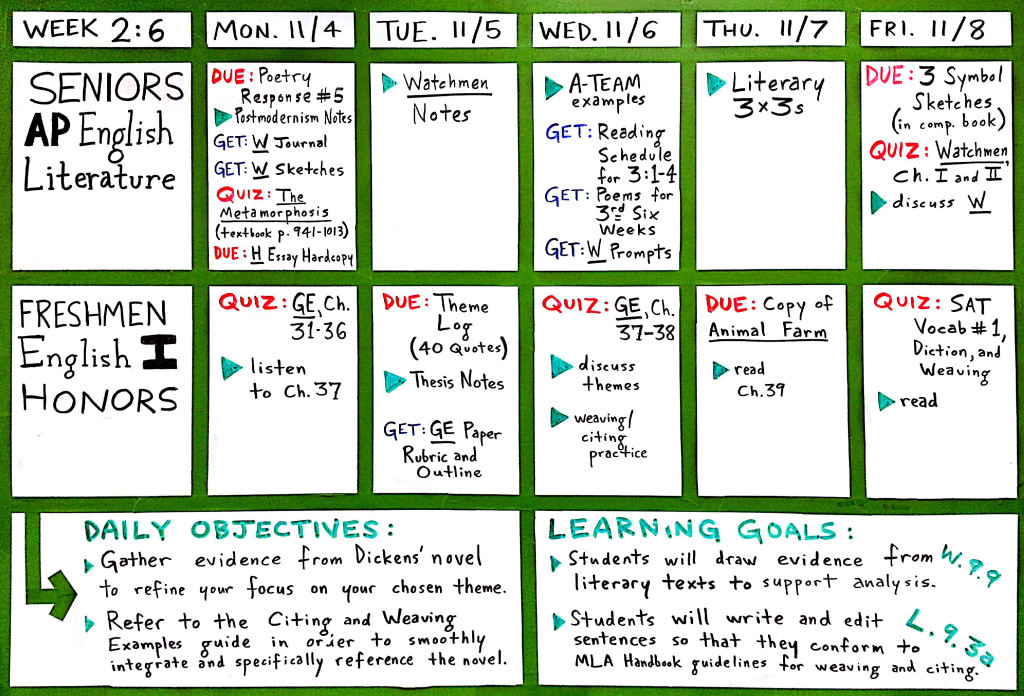 WEEK 2:6
MON. 11/4
TUE. 11/5
WED. 11/6
THU. 11/7
FRI. 11/8
SENIORS
AP English
Literature
DUE: Poetry
Response #5
Postmodernism Notes
GET: W Journal
GET: W Sketches
QUIZ: The
Metamorphosis
(textbook p. 941-1013)
DUE: H Essay Hardcopy
Watchmen
Notes
A-TEAM
examples
GET: Reading
Schedule
for 3:1-4
GET: Poems for
3rd Six
Weeks
GET: W Prompts
Literary
3×3s
DUE: 3 Symbol
Sketches
(in comp. book)
QUIZ: Watchmen,
Ch. I and II
discuss W
FRESHMEN
English I
HONORS
QUIZ: GE, Ch.
31-36
listen
to Ch. 37
DUE: Theme
Log
(40 Quotes)
Thesis Notes
GET: GE Paper
Rubric and
Outline
QUIZ: GE, Ch.
37-38
discuss
themes
weaving/
citing
practice
DUE: Copy of
Animal Farm
read
Ch. 39
QUIZ: SAT
Vocab #1,
Diction, and
Weaving
read
DAILY OBJECTIVES:
Gather evidence from Dickens' novel
to refine your focus on your chosen theme.
Refer to the Citing and Weaving
Examples guide in order to smoothly
integrate and specifically reference the novel.
LEARNING GOALS:
Students will draw evidence from
literary texts to support analysis.
W.9.9
Students will write and edit
sentences so that they conform to
MLA Handbook guidelines for weaving and citing.
L.9.3a